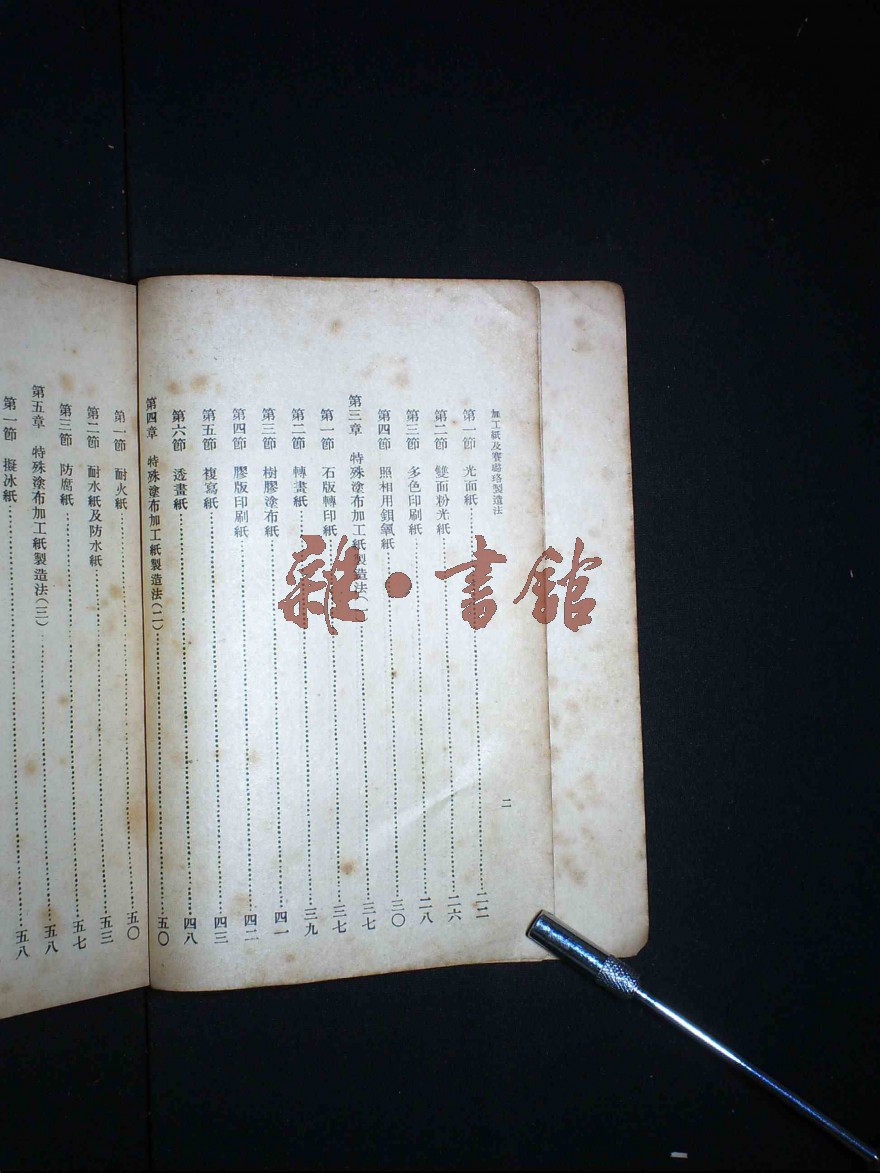 加工紙及賽璐珞製造法
第一節　光面紙……二二
第二節　雙面粉光紙……二六
第三節　多色印刷紙……二八
第四節　照相用鋇氧紙……三〇
第三章　特殊塗布加工紙製造法(一)……三七
第一節　石版轉印紙……三七
第二節　轉畫紙……三九
第三節　樹膠塗布紙……四一
第四節　膠版印刷紙……四二
第五節　複寫紙……四三
第六節　透畫紙……四八
第四章　特殊塗布加工紙製造法(二)……五〇
二
第一節　耐火紙……五〇
第二節　耐水紙及防水紙……五三
第三節　防腐紙……五七
第五章　特殊塗布加工紙製造法(三)……五八
第一節　擬冰紙……五八
雜·書館